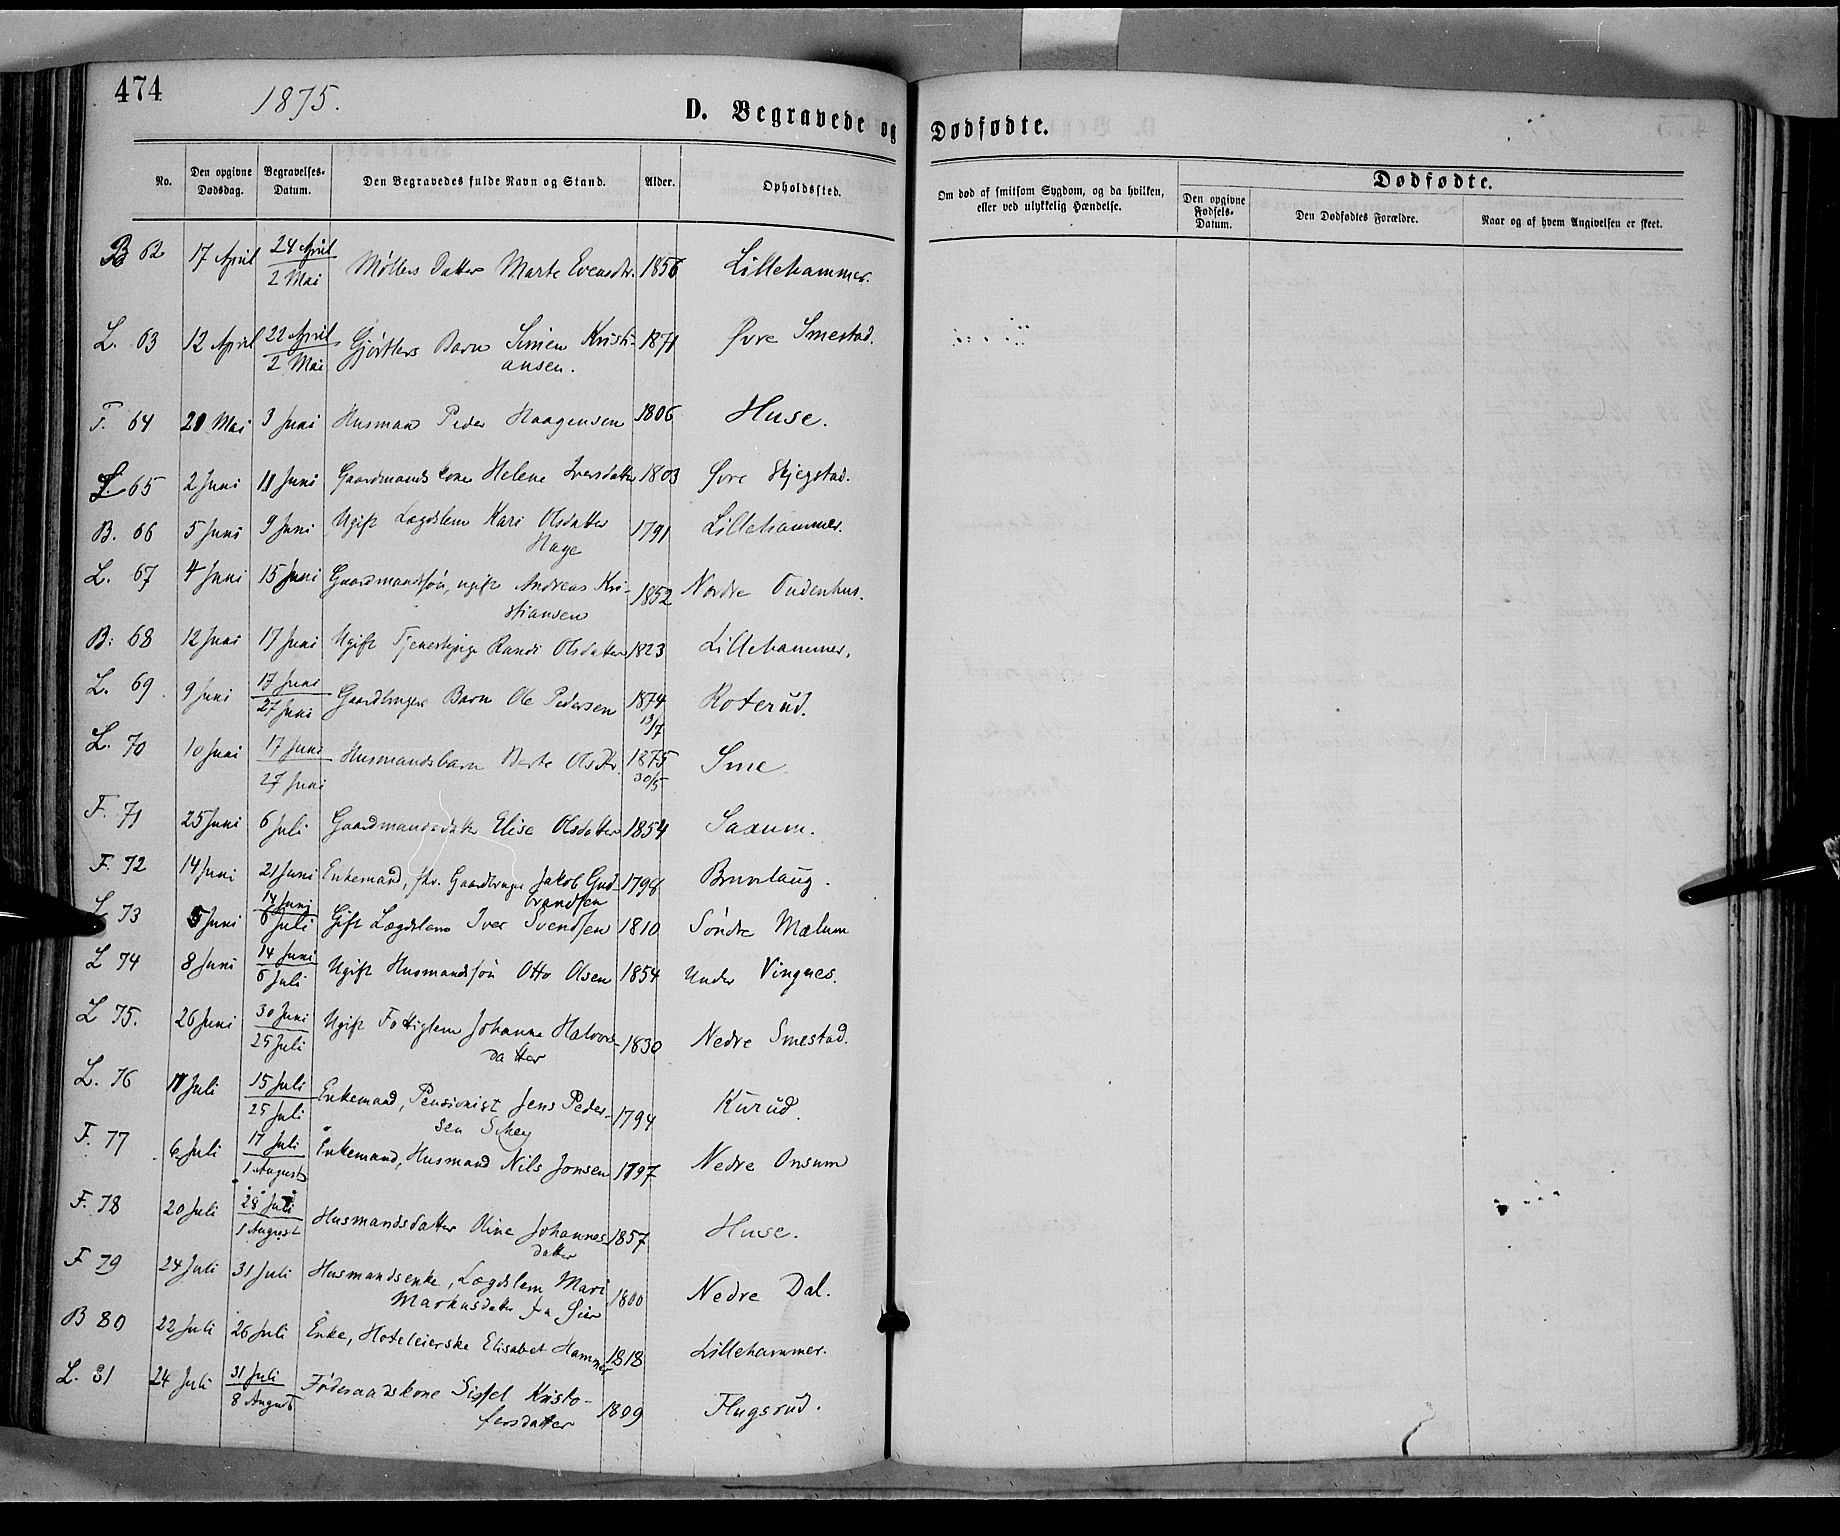 474
1875.
D. Begravede og Dødfødte.
No.
Den opgivne Dødsdag.
Begravelses-Datum.
Den Begravedes fulde Navn og Stand.
Alder.
Opholdssted.
Om død af smitsom Sygdom, og da hvilken, eller ved ulykkelig Hændelse.
Dødfødte.
Den opgivne Fødsels-Datum.
Den Dødfødtes Forældre.
Naar og af hvem Angivelsen er skeet.
B 62 17 April 24 April / 2 Mai Møllers Datter Marte Evensdtr. 1856 Lillehammer.
L. 63 12 April 22 April / 2 Mai Gjørtlers Barn Simen Kristi- 1871 Øvre Smestad.
ansen.
F. 64 20 Mai 3 Juni Husmand Peder Haagensen 1806 Huse.
L. 65 2 Juni 11 Juni Gaardmands kone Helene Iversdatter 1803 Øvre Skjegstad.
B. 66 5 Juni 9 Juni Ugift Lægdslem Kari Olsdatter 1791 Lillehammer.
Hage
L. 67 4 Juni 15 Juni Gaardmandssøn, ugift Andreas Kri- 1852 Nordre
stiansen
B: 68 12 Juni 17 Juni Ugift Tjenestepige Randi Olsdatter 1823 Lillehammer.
L. 69. 9 Juni 17 Juni / 27 Juni Gaardbruger Barn Ole Pedersen 1874 13/7 Roterud.
L. 70 10 Juni 17 Juni / 27 Juni Husmandsbarn Berte Olsdtr. 1875 30/5 Sme
F. 71 25 Juni 6 Juli Gaardmandsdatter Elise Olsdatter 1854 Saxum.
F. 72 14 Juni 21 Juni Enkemand, fhv. Gaardbruger Jakob Gud- 1798 Brunlaug.
brandsen
L 73 5 Juni 14 Juni / 6 Juli Gift Lægdslem Iver Svendsen 1810 Søndre Mælum
L 74 8 Juni 14 Juni / 6 Juli Ugift Husmandssøn Otto Olsen 1854 Under Vingnes.
L 75. 26 Juni 30 Juni / 25 Juli Ugift Fattiglem Johanne Halvors- 1830 Nedre Smestad.
datter
L. 76 11 Juli 15 Juli / 25 Juli Enkemand, Pensionist Jens Peder- 1794 Kurud.
sen
F. 77 6 Juli 17 Juli / 1 August Enkemand, Husmand Nils Jonsen 1797 Nedre Onsum
F. 78 20 Juli 28 Juli / 1 August Husmandsdatter Oline Johannes- 1857 Huse.
datter
F 79 24 Juli 31 Juli Husmandsenke, Lægdslem Mari 1800 Nedre Dal.
Markusdatter fra Øier
B 80 22 Juli 26 Juli Enke, Hoteleierske Elisabet Hammer 1818 Lillehammer.
L. 81 24 Juli 31 Juli / 8 August Føderaadskone Sissel Kristo- 1809 Flugsrud.
fersdatter